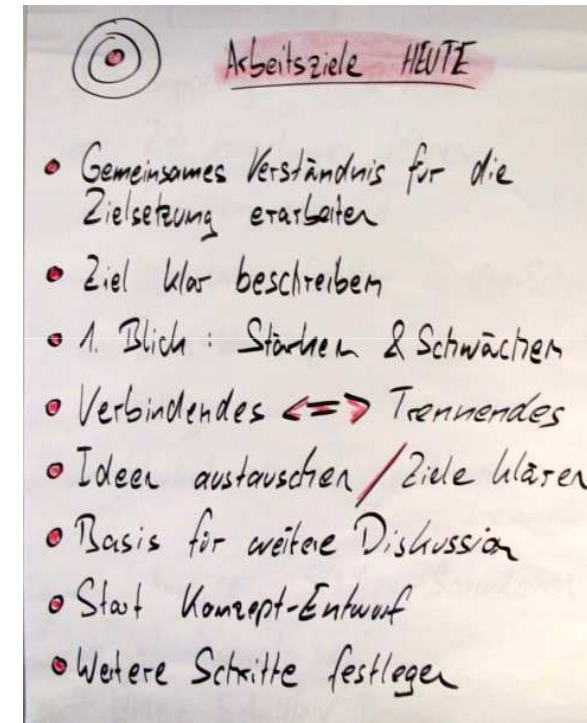 Arbeitsziele HEUTE
• Gemeinsames Verständnis für die
Zielsetzung erarbeiten
• Ziel klar beschreiben
• 1. Blick: Stärken & Schwächen
• Verbindendes <=> Trennendes
• Ideen austauschen / Ziele klären
• Basis für weitere Diskussion
• Start Konzept-Entwurf
• Weitere Schritte festlegen